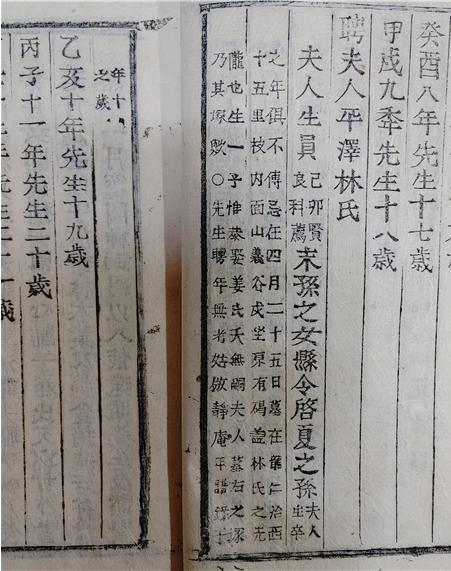 癸酉八年先生十七歲
甲戌九秊先生十八歲
聘夫人平澤林氏
夫人生員己卯賢良科薦末孫之女縣令啓夏之孫夫人生卒
之年俱不傳忌在四月二十五日墓在龍仁治西
十五里枝內面山義谷戌坐原有碣盖林氏之先
隴也生一子惟恭娶姜氏夭無嗣夫人墓右之塚
乃其塚歟○先生聘年無考姑倣靜庵年譜錄于
年十
之歲
乙亥十年先生十九歲
丙子十一年先生二十歲